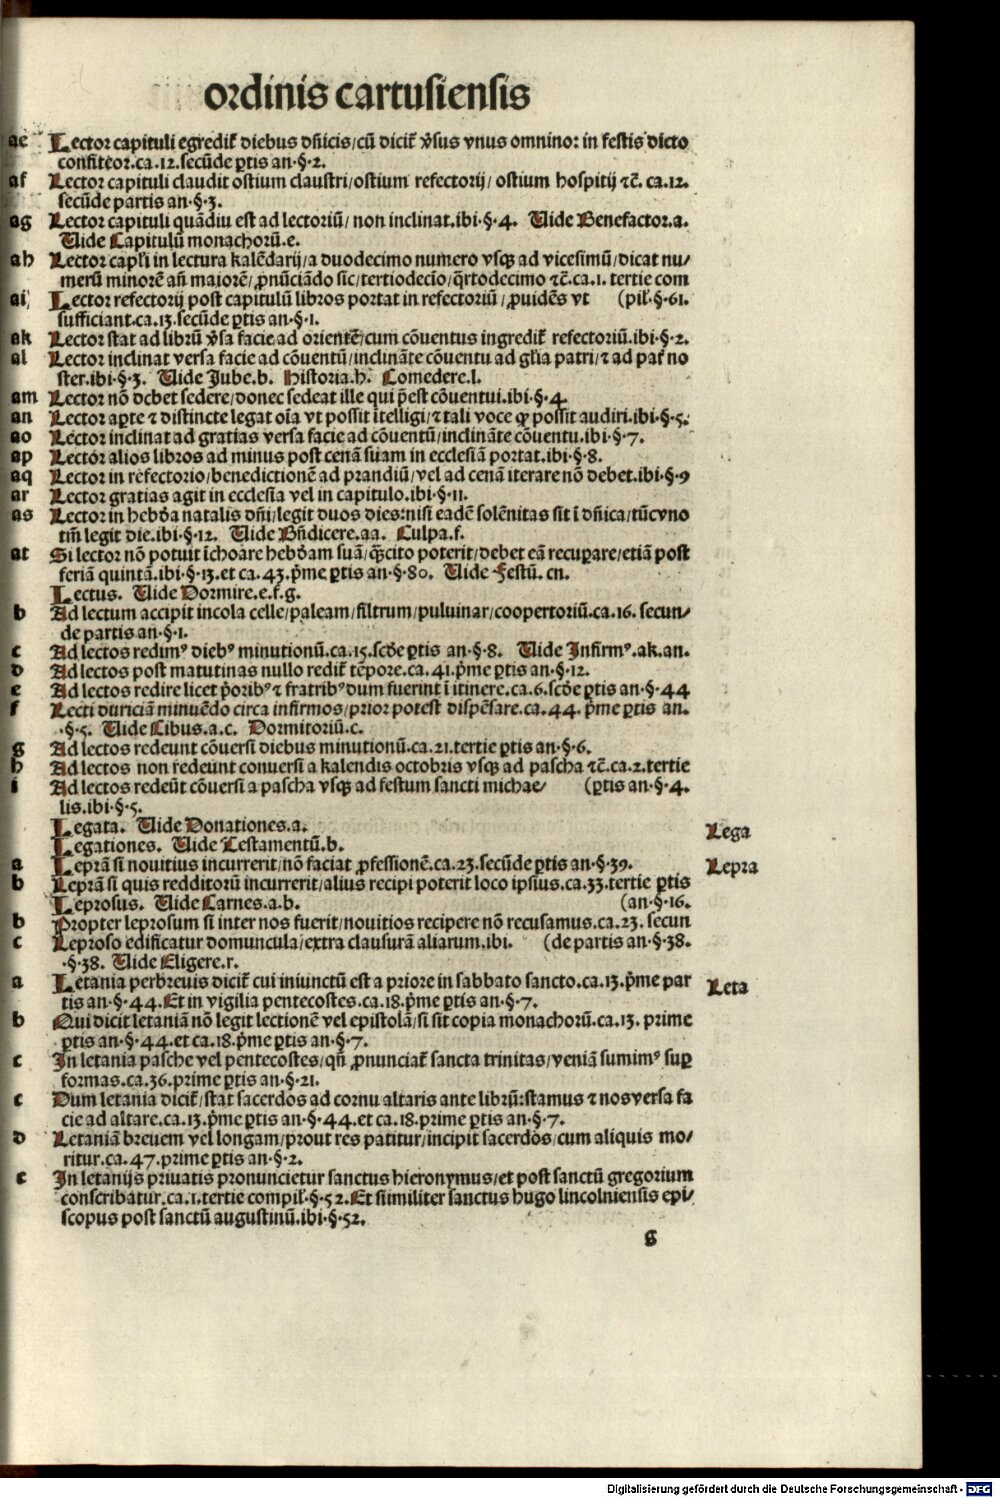 ordinis cartusiensis
ae Lector capituli egredit᷑ diebus dn̄icis/cū dicit᷑ v̓sus vnus omnino: in festis dicto
confiteor.ca.12.secūde ꝑtis an·§·2.
af Lector capituli claudit ostium claustri/ostium refectorij/ ostium hospitij ⁊c̄. ca.12.
secūde partis an·§·3.
ag Lector capituli quādiu est ad lectoriū/ non inclinat.ibi·§·4. Uide Benefactor.a.
Uide Capitulū monachorū.e.
ah Lector capl̓i in lectura kalēdarij/a duodecimo numero vsqꝫ ad vicesimū/dicat nu/
merū minorē an̄ maiorē/ꝓnūciādo sic/tertiodecīo/q̄rtodecimo ⁊c̄.ca.1. tertie com
ai Lector refectorij post capitulū libros portat in refectoriū/ꝓuidēs vt (pil̓·§·61.
sufficiant.ca.13.secūde ꝑtis an·§·1.
ak Lector stat ad librū v̓sa facie ad orientē/cum cōuentus ingredit᷑ refectoriū.ibi·§·2.
al Lector inclinat versa facie ad cōuentū/inclināte cōuentu ad gl̓ia patri/⁊ ad pat᷑ no
ster.ibi·§·3. Uide Jube.b. Historia.h. Comedere.l.
am Lector nō debet sedere/donec sedeat ille qui p̄est cōuentui.ibi·§·4.
an Lector aꝑte ⁊ distincte legat oīa vt possit ītelligi/⁊ tali voce qꝫ possit audiri.ibi·§·5.
ao Lector inclinat ad gratias versa facie ad cōuentū/inclināte cōuentu.ibi·§·7.
ap Lector alios libros ad minus post cenā suam in ecclesiā portat.ibi·§·8.
aq Lector in refectorio/benedictionē ad prandiū/vel ad cenā iterare nō debet.ibi·§·9
ar Lector gratias agit in ecclesia vel in capitulo.ibi·§·11.
as Lector in hebd̓a natalis dn̄i/legit duos dies:nisi eadē solēnitas sit ī dn̄ica/tūc vno
tm̄ legit die.ibi·§·12. Uide Bn̄dicere.aa. Culpa.f.
at Si lector nō potuit īchoare hebd̓am suā/q̄scito poterit/debet eā recuꝑare/etiā post
feriā quintā.ibi·§·13.et ca.43.p̓me ꝑtis an·§·80. Uide Festū.cn.
Lectus. Uide Dormire.e.f.g.
b Ad lectum accipit incola celle/paleam/filtrum/puluinar/coopertoriū.ca.16. secun/
de partis an·§·1.
c Ad lectos redimꝰ diebꝰ minutionū.ca.15.scd̓e ꝑtis an·§·8. Uide Infirmꝰ.ak.an.
d Ad lectos post matutinas nullo redit᷑ tēpore.ca.41.p̓me ꝑtis an·§·12.
e Ad lectos redire licet p̓oribꝰ ⁊ fratribꝰ dum fuerint ī itinere.ca.6.scd̓e ꝑtis an·§·44
f Lecti duriciā minuēdo circa infirmos/prior potest dispēsare.ca.44. p̓me ꝑtis an.
·§·5. Uide Cibus.a.c. Dormitoriū.c.
g Ad lectos redeunt cōuersi diebus minutionū.ca.21.tertie ꝑtis an·§·6.
h Ad lectos non redeunt conuersi a kalendis octobris vsqꝫ ad pascha ⁊c̄.ca.2.tertie
i Ad lectos redeūt cōuersi a pascha vsqꝫ ad festum sancti michae/ (ꝑtis an·§·4.
lis.ibi·§·5.
Legata. Uide Donationes.a. Lega
Legationes. Uide Testamentū.b.
a Leprā si nouitius incurrerit/nō faciat ꝓfessionē.ca.23.secūde ꝑtis an·§·39. Lepra
b Leprā si quis redditorū incurrerit/alius recipi poterit loco ipsius.ca.33.tertie ꝑtis
Leprosus. Uide Carnes.a.b. (an·§·16.
b Propter leprosum si inter nos fuerit/nouitios recipere nō recusamus.ca.23. secun
c Leproso edificatur domuncula/extra clausurā aliarum.ibi. (de partis an·§·38.
·§·38. Uide Eligere.r.
a Letania perbreuis dicit᷑ cui iniunctū est a priore in sabbato sancto.ca.13.p̓me par Leta
tis an·§·44.Et in vigilia pentecostes.ca.18.p̓me ꝑtis an·§·7.
b Qui dicit letaniā nō legit lectionē vel epistolā/si sit copia monachorū.ca.13. prime
ꝑtis an·§·44.et ca.18.p̓me ꝑtis an·§·7.
c In letania pasche vel pentecostes/qn̄ ꝓnunciat᷑ sancta trinitas/veniā sumimꝰ suꝑ
formas.ca.36.prime ꝑtis an·§·21.
c Dum letania dicit᷑/stat sacerdos ad cornu altaris ante librū:stamus ⁊ nos versa fa
cie ad altare.ca.13.p̓me ꝑtis an·§·44.et ca.18.prime ꝑtis an·§·7.
d Letaniā breuem vel longam/prout res patitur/incipit sacerdos/cum aliquis mo/
ritur.ca.47.prime ꝑtis an·§·2.
e In letanijs priuatis pronuncietur sanctus hieronymus/et post sanctū gregorium
conscribatur.ca.1.tertie compil̓·§·52.Et similiter sanctus hugo lincolniensis epi/
scopus post sanctū augustinū.ibi·§·52.
g
Digitalisierung gefördert durch die Deutsche Forschungsgemeinschaft · DFG